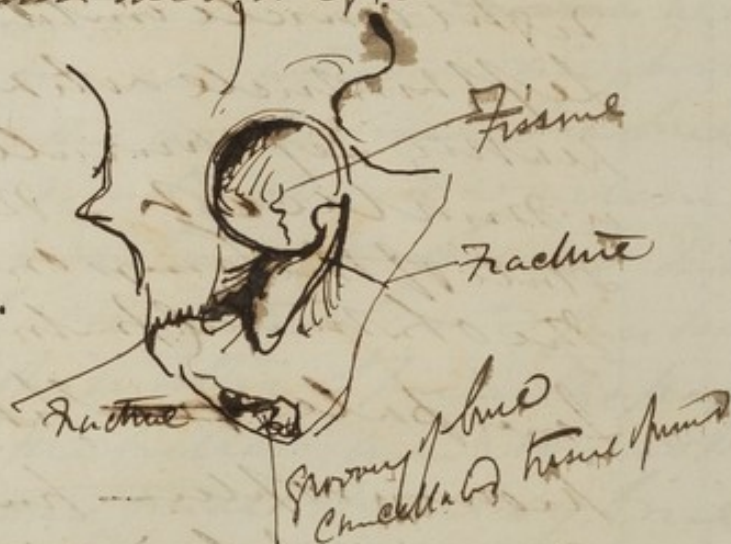 Fissure
Fracture
Fracture
Grooving of bone
Cancellated tissue